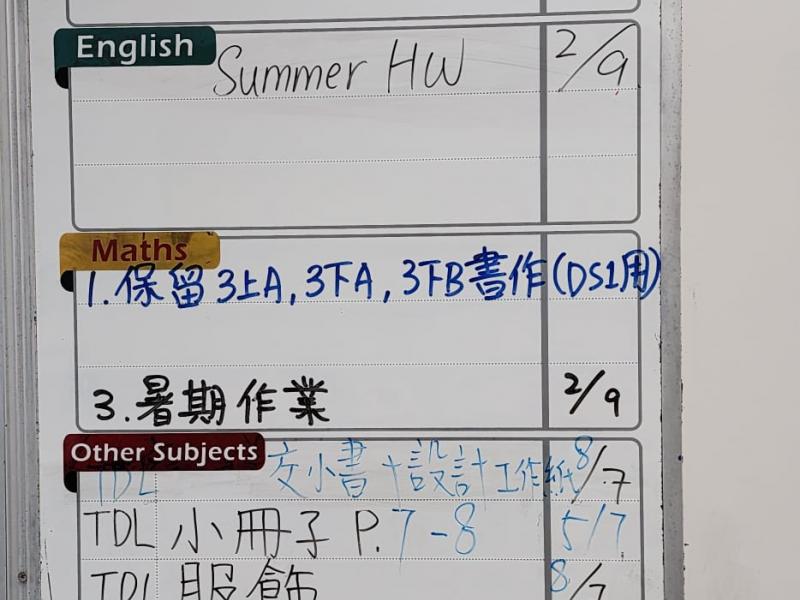 English
Summer HW 2/9
Maths
1. 保留3上A, 3下A, 3下B書作(DS1用)
3. 暑期作業 2/9
Other Subjects
TDL 交小書+設計工作紙 8/7
TDL 小冊子 P.7-8 5/7
TDL 服飾 8/7